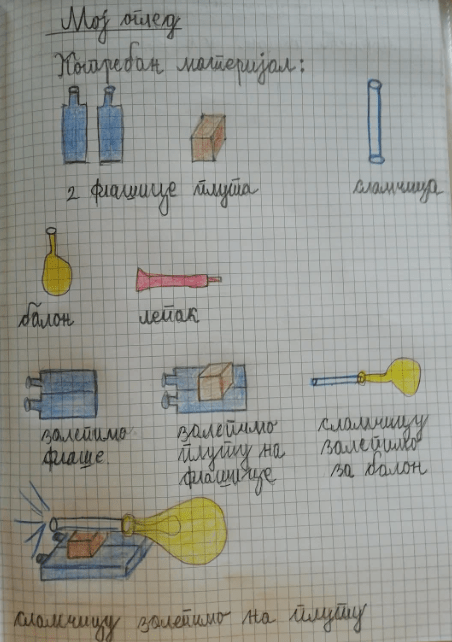 Мој оглед
Потребан материјал:
2 флашице плута сламчица
балон лепак
залепимо флаше
залепимо плуту на флашице
сламчицу залепимо за балон
сламчицу залепимо на плуту